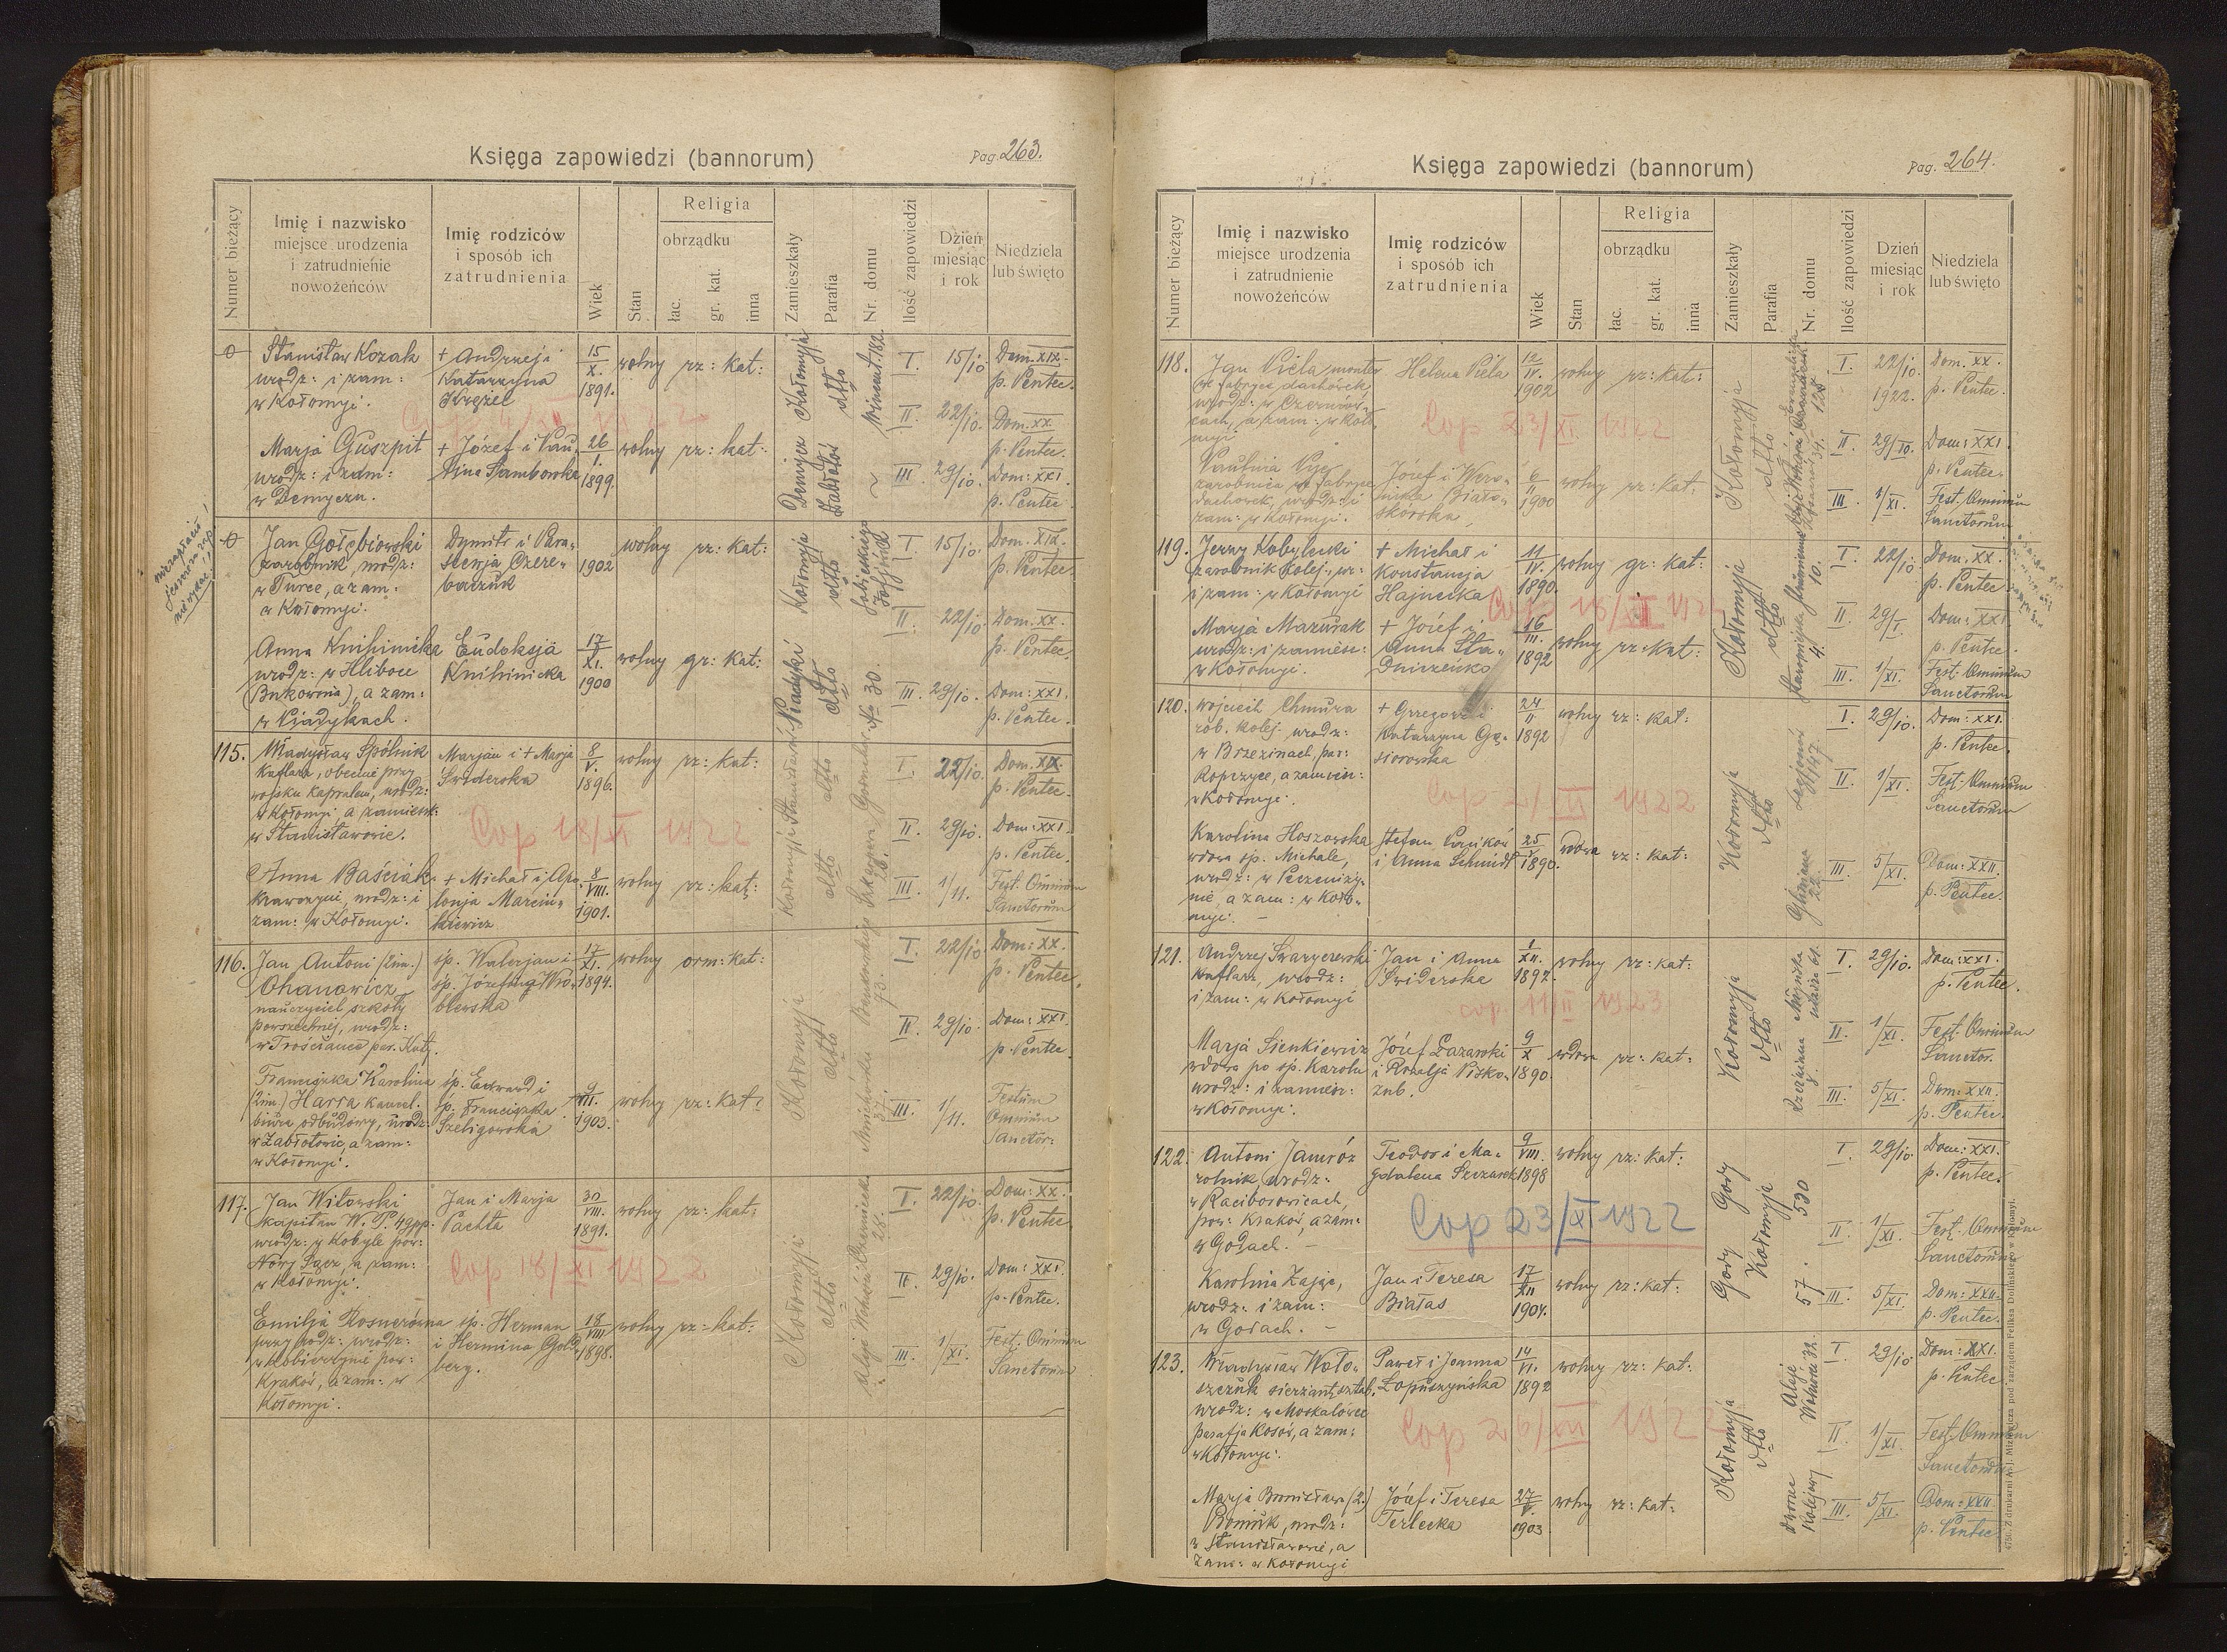 Księga zapowiedzi (bannorum)
Pag. 263.
Numer bieżący
Imię i nazwisko
miejsce urodzenia
i zatrudnienie
nowożeńców
Imię rodziców
i sposób ich
zatrudnienia
Wiek
Stan
Religia
obrządku
łac.
gr. kat.
inna
Zamieszkały
Parafia
Nr. domu
Ilość zapowiedzi
Dzień
miesiąc
i rok
Niedziela
lub święto
Stanisław Kozak
urodz: i zam:
w Kołomyi.
+ Andrzej i
Katarzyna
15
X.
1891.
wolny rz: kat:
Kołomyja
dtto
I. 15/10 Dom. XIX.
p. Pentec.
II. 22/10. Dom. XX
p. Pentec.
III. 29/10. Dom: XXI.
p. Pentec.
Marja Guszpit
urodz: i zam:
w Demyczu.
+ Józef i Pau-
lina
26
1.
1899.
wolny rz: kat:
Demycze
niezapłacił
jeszcze zap.
Jan Gołębiowski
zarobnik, urodz:
w Turce, a zam:
w Kołomyi.
Dymitr i Para-
1902
wolny rz: kat:
Kołomyja
dtto
I. 15/10. Dom. XIX.
p. Pentec.
II. 22/10. Dom. XX.
p. Pentec.
III. 29/10. Dom: XXI.
p. Pentec.
Anna Knihinicka
urodz: w Hliboce
(Bukowina), a zam:
w Piadykach.
Eudoksja
Knihinicka
17
XI.
1900
wolny gr: kat:
Piadyki
dtto
No 30.
115. Władysław Spólnik
kaflarz, obecnie przy
wojsku kapralem, urodz:
w Kołomyi, a zamiesk:
w Stanisławowie.
Marjan i + Marja
Swiderska
8
V.
1896.
wolny rz: kat:
Cop 18/XI 1922
I. 22/10. Dom. XX.
p. Pentec.
II. 29/10. Dom: XXI.
p. Pentec.
III. 1/11. Fest. Omnium
Sanctorum
Anna Baściak
krawczyni, urodz: i
zam: w Kołomyi.
+ Michał i Apo-
lonja Marcin-
kiewicz
8
VIII.
1901.
wolny rz: kat:
116. Jan Antoni (2im.)
Ohanowicz
nauczyciel szkoły
powszechnej, urodz:
w Trościańcu par. Kuty.
śp. Walerjan i
śp. Józefina Wró-
blewska
17
XI.
1894.
wolny orm: kat:
Kołomyja
dtto
I. 22/10. Dom: XX.
p. Pentec.
II. 29/10. Dom: XXI.
p. Pentec.
III. 1/11. Festum
Omnium
Sanctor:
Franciszka Karolina
(2im.) Harra kancel.
biura odbudowy, urodz:
w Zabłotowie, a zam:
w Kołomyi.
śp. Edward i
śp. Franciszka
Szeligowska
9
VII.
1903.
wolny rz: kat:
117. Jan Witowski
kapitan W. P. 49pp.
urodz: w Kobyle pow:
Nowy Sącz, a zam:
w Kołomyi.
Jan i Marja
Pachta
30
VIII.
1891.
wolny rz: kat:
Cop 18/XI 1922
Kołomyja
dtto
I. 22/10. Dom: XX.
p. Pentec.
II. 29/10. Dom: XXI.
p. Pentec.
III. 1/XI. Fest. Omnium
Sanctorum
Emilja Rosnerówna
przy rodz: urodz:
w Kobierzynie pow:
Kraków, a zam: w
Kołomyi.
śp. Herman
i Hermina Gold-
berg.
18
VIII
1898.
wolny rz: kat:
Księga zapowiedzi (bannorum)
Pag. 264.
Numer bieżący
Imię i nazwisko
miejsce urodzenia
i zatrudnienie
nowożeńców
Imię rodziców
i sposób ich
zatrudnienia
Wiek
Stan
Religia
obrządku
łac.
gr. kat.
inna
Zamieszkały
Parafia
Nr. domu
Ilość zapowiedzi
Dzień
miesiąc
i rok
Niedziela
lub święto
118. Jan Piela monter
w fabryce dachówek
urodz: w Czerniow-
cach, a zam: w Koło-
myi
Helena Piela
12
IV.
1902
wolny rz: kat:
Cop 23/XI 1922
Kołomyja
dtto
I. 22/10. Dom. XX.
1922. p. Pentec.
II. 29/10. Dom: XXI.
p. Pentec.
III. 1/XI. Fest. Omnium
Sanctorum
Paulina
zarobnica w fabryce
dachówek, urodz: i
zam: w Kołomyi.
Józef i Wero-
nika Biało-
skórska
6
II
1900
wolny rz: kat:
119. Jerzy Kobylecki
zarobnik kolej., ur:
i zam: w Kołomyi
+ Michał i
Konstancja
Hajnecka
11
IV.
1890.
wolny gr: kat:
Kołomyja
dtto
I. 22/10 Dom. XX.
p. Pentec.
II. 29/X. Dom: XXI
p. Pentec.
III. 1/XI. Fest. Omnium
Sanctorum
Marja Mazurak
urodz: i zamiesz:
w Kołomyi.
+ Józef i
Anna
16
III.
1892
wolny rz: kat:
120. Wojciech Chmura
rob. kolej. urodz:
w Brzezinach, par:
Ropczyce, a zamiesz:
w Kołomyi.
+ Grzegorz i
Katarzyna Gą-
siorowska
24
II
1892
wolny rz: kat:
Kołomyja
dtto
I. 29/10. Dom: XXI.
p. Pentec.
II. 1/XI. Fest. Omnium
Sanctorum
III. 5/XI. Dom: XXII.
p. Pentec.
Karolina Hoszowska
wdowa śp. Michale,
urodz: w Peczeniży-
nie, a zam: w Koło-
myi.
Stefan
i Anna Schmidt
25
1890.
wdowa rz: kat:
121. Andrzej
kaflarz, urodz:
i zam: w Kołomyi
Jan i Anna
Swiderska
1
XII.
1892.
wolny rz: kat:
cop. 11/II 1923
Kołomyja
dtto
I. 29/10. Dom: XXI.
p. Pentec.
II. 1/XI. Fest. Omnium
Sanctor.
III. 5/XI. Dom: XXII.
p. Pentec.
Marja Sienkiewicz
wdowa po śp. Karolu
urodz: i zamiesz:
w Kołomyi.
Józef Łazarski
i Rozalja Pisko-
zub.
9
X
1890.
wdowa rz: kat:
122. Antoni Jamróz
rolnik, urodz:
w Raciborowicach,
pow: Kraków, a zam:
w Godach.
Teodor i Ma-
gdalena
9
VIII.
1898
wolny rz: kat:
Cop 23/XI 1922
Gody
Kołomyja
530
I. 29/10. Dom: XXI.
p. Pentec.
II. 1/XI. Fest. Omnium
Sanctorum
III. 5/XI. Dom: XXII.
p. Pentec.
Karolina Zając,
urodz: i zam:
w Godach.
Jan i Teresa
Białas
17
XII
1904.
wolny rz: kat:
Gody
57.
123. Władysław Woło-
szczuk sierżant sztab.
urodz: w Moskalówce
parafja Kosów, a zam:
w Kołomyi.
Paweł i Joanna
Łopuszyńska
14
VI.
1892
wolny rz: kat:
Cop 26/XII 1922
Kołomyja
dtto
I. 29/10 Dom: XXI.
p. Pentec
II. 1/XI. Fest. Omnium
Sanctorum
III. 5/XI. Dom: XXII.
p. Pentec
Marja Bronisława (2.)
urodz:
w Stanisławowie, a
zam: w Kołomyi
Józef i Teresa
Terlecka
27
V.
1903
wolny rz: kat: